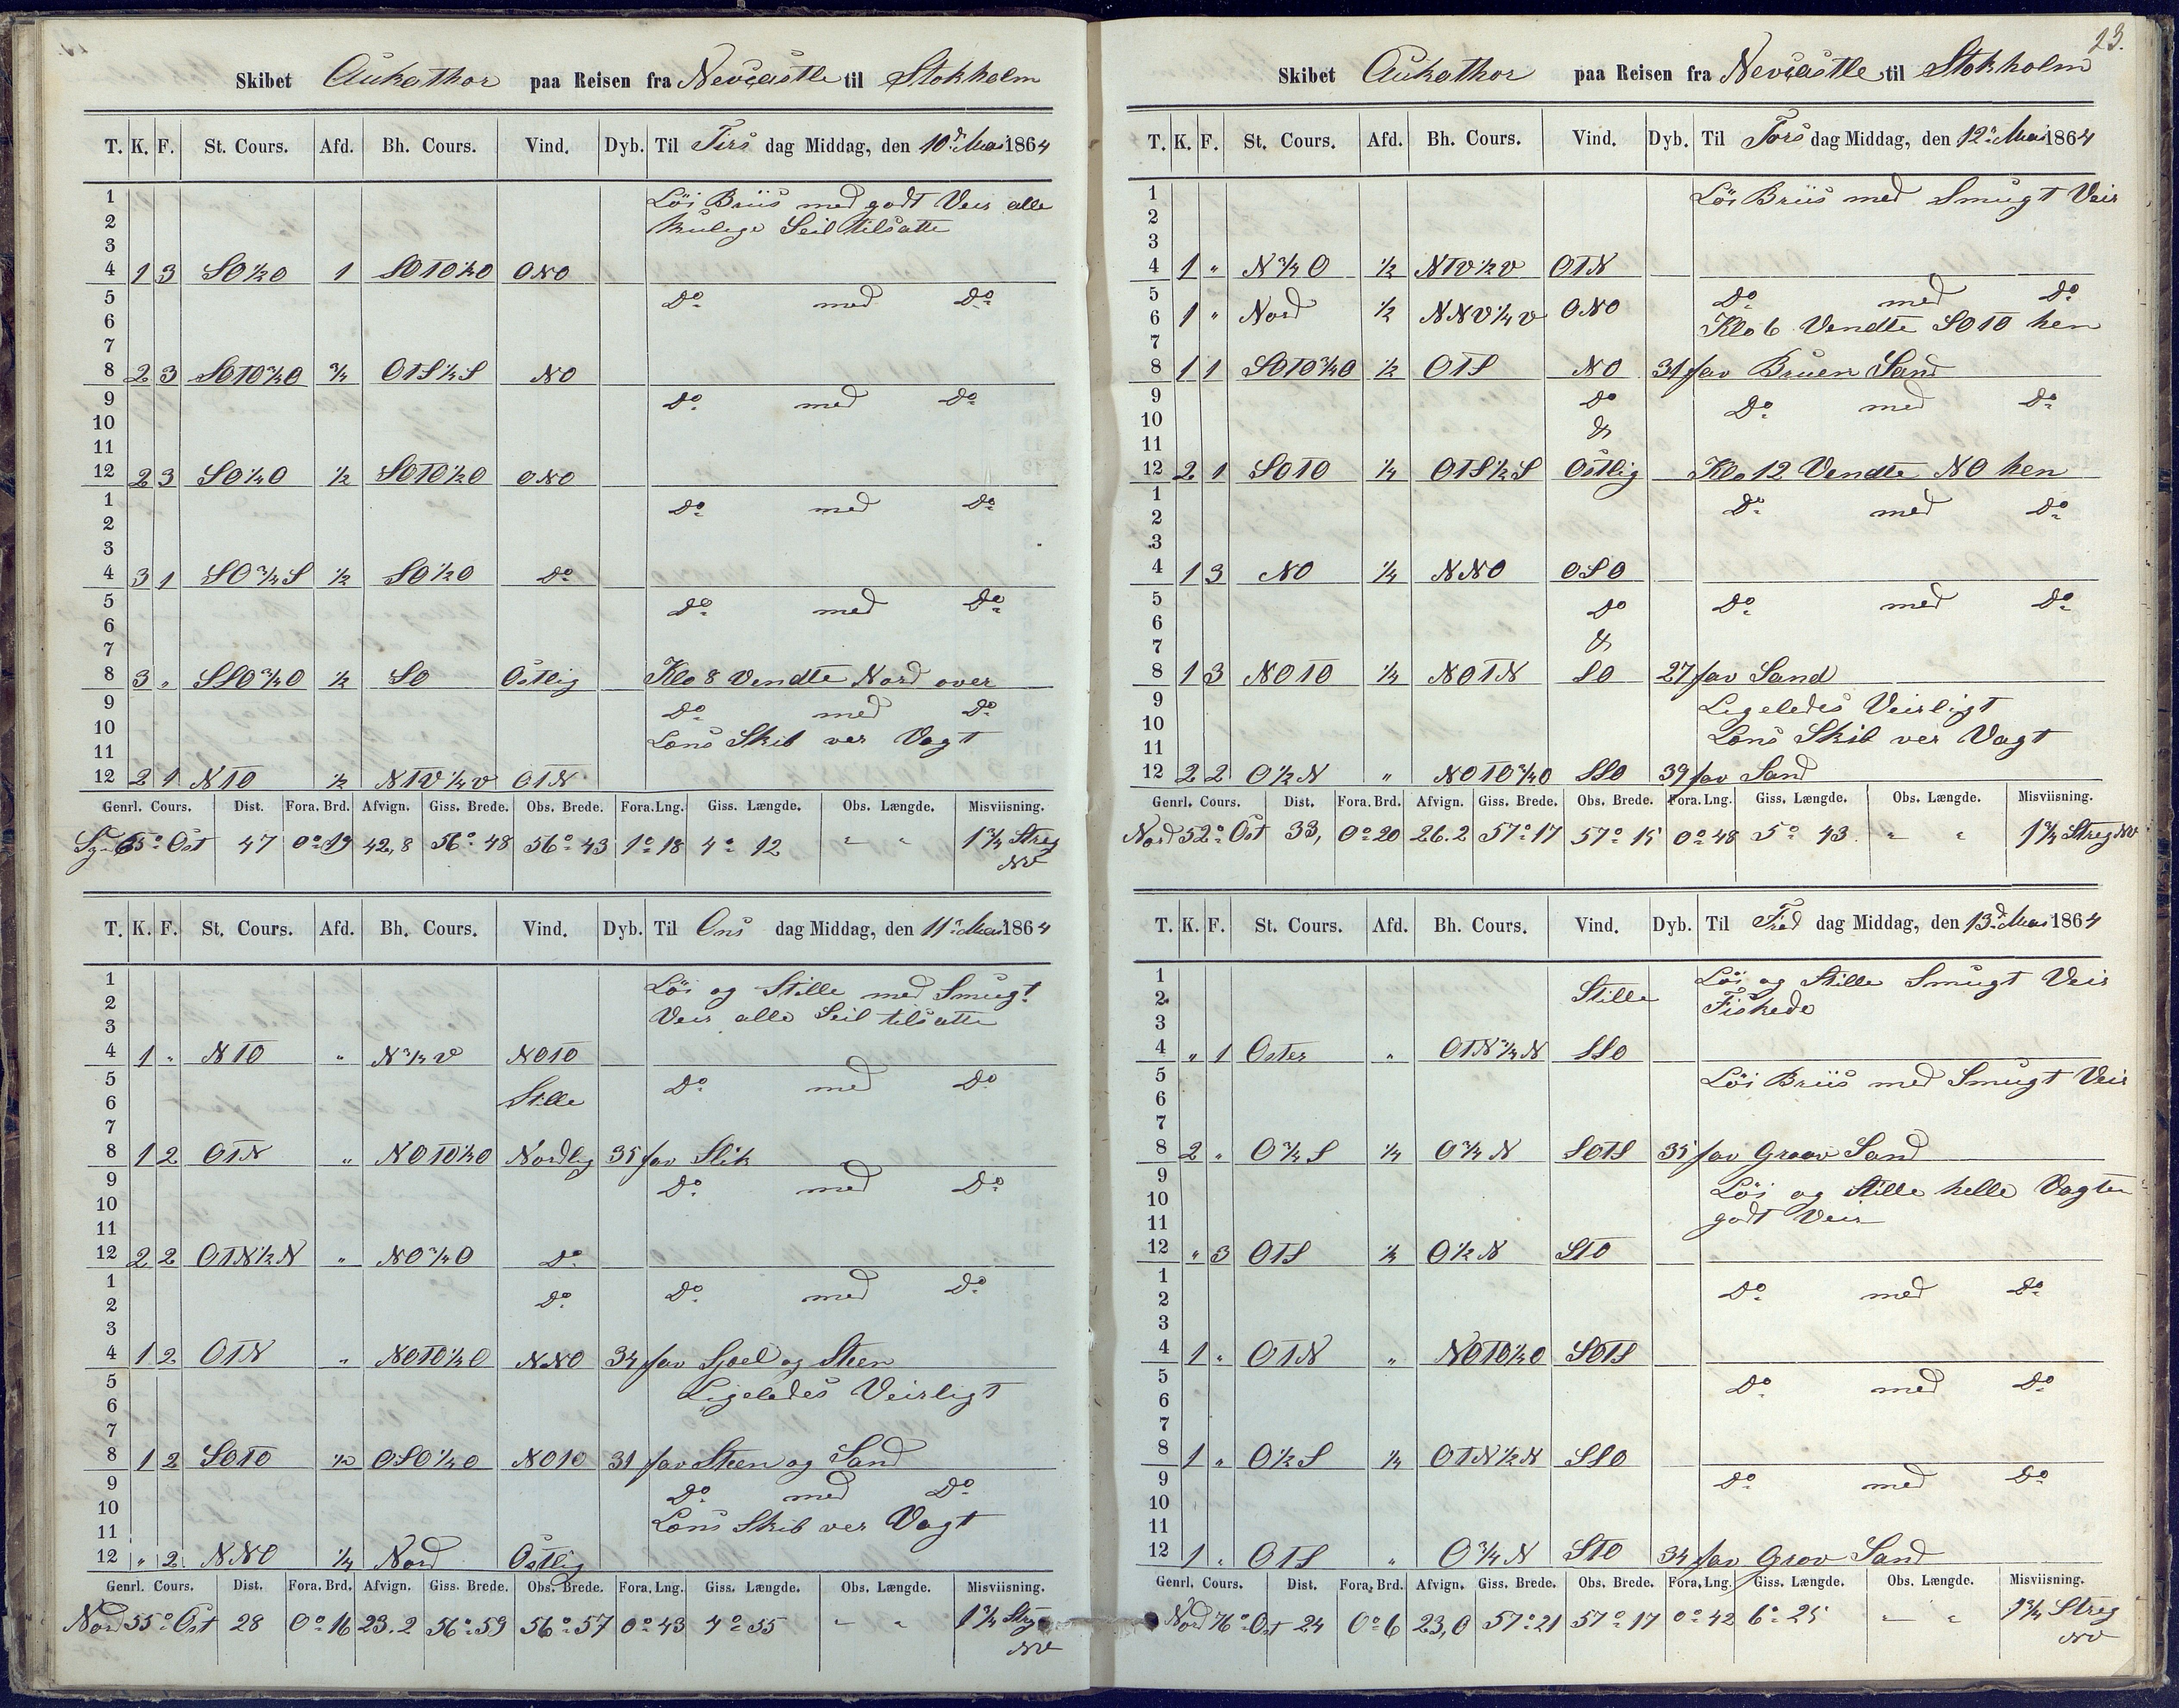 Skibet Aukathor paa Reisen fra Nevcastle til Stokholm
T. K. F. St. Cours. Afd. Bh. Cours. Vind. Dyb. Til Tirs dag Middag, den 10de Mai 1864
1 Löi Briis med godt Veir alle
2 kulige Seil tilsatte
3
4 1 3 SO½O 1 SOTO½O ONO
5 Do med Do
6
7
8 2 3 SOTO¾O ¾ OTS¼S NO
9 Do med Do
10
11
12 2 3 SO¼O ½ SOTO½O ONO
1 Do med Do
2
3
4 3 1 SO¾S ½ SO½O Do
5 Do med Do
6
7
8 3 " SSO¾O ½ SO Östlig Klo 8 Vendte Nord over
9 Do med Do
10 Lens Skib ver Vagt
11
12 2 1 NTO ½ NTV¼V OTN
Genrl. Cours. Dist. Fora. Brd. Afvign. Giss. Brede. Obs. Brede. Fora. Lng. Giss. Længde. Obs. Længde. Misviisning.
Syd 65° Ost 47 0°19 42,8 56°48 56°43 1°18 4°12 " " 1¾ Streg
NV
T. K. F. St. Cours. Afd. Bh. Cours. Vind. Dyb. Til Ons dag Middag, den 11te Mai 1864
1 Löi og Stille med Smugt
2 Veir alle Seil tilsatte
3
4 1 " NTO " N¾V NOTO
5 Do med Do
6 Stille
7
8 1 2 OTN " NOTO½O Nordlig 35 fav Slik
9 Do med Do
10
11
12 2 2 OTN½N " NO¾O Do
1 Do med Do
2 Do
3
4 1 2 OTN " NOTO¼O NNO 34 fav Sjoel og Steen
5 Ligeledes Veirligt
6
7
8 1 2 SOTO ½ OSO¼O NOTO 31 fav Steen og Sand
9 Do med Do
10 Lens Skib ver Vagt
11
12 " 2 NNO ¼ Nord Östlig
Genrl. Cours. Dist. Fora. Brd. Afvign. Giss. Brede. Obs. Brede. Fora. Lng. Giss. Længde. Obs. Længde. Misviisning.
Nord 55° Ost 28 0°16 23.2 56°59 56°57 0°43 4°55 " " 1¾ Streg
NV
23.
Skibet Aukathor paa Reisen fra Nevcastle til Stokholm
T. K. F. St. Cours. Afd. Bh. Cours. Vind. Dyb. Til Tors dag Middag, den 12te Mai 1864
1 Löi Briis med Smugt Veir
2
3
4 1 " N¾O ½ NTV½V OTN
5 Do med Do
6 1 " Nord ½ NNV¼V ONO Klo 6 Vendte SOTO hen
7
8 1 1 SOTO¾O ½ OTS NO 31 fav Bruen Sand
9 Do Do med Do
10 &
11
12 2 1 SOTO ¼ OTS½S Östlig Klo 12 Vendte NO hen
1 Do med Do
2
3
4 1 3 NO ¼ NNO OSO
5 Do Do med Do
6
7 &
8 1 3 NOTO ¼ NOTN SO 27 fav Sand
9 Ligeledes Veirligt
10 Lens Skib ver Vagt
11
12 2 2 O½N " NOTO¾O SSO 39 fav Sand
Genrl. Cours. Dist. Fora. Brd. Afvign. Giss. Brede. Obs. Brede. Fora. Lng. Giss. Længde. Obs. Længde. Misviisning.
Nord 52° Ost 33, 0°20 26.2 57°17 57°15 0°48 5°43 " " 1¾ Streg NV
T. K. F. St. Cours. Afd. Bh. Cours. Vind. Dyb. Til Fred dag Middag, den 13de Mai 1864
1 Löi og Stille Smugt Veir
2 Stille Fiskede
3
4 " 1 Oster " OTN¾N SSO
5 Löi Briis med Smugt Veir
6
7
8 2 " O¾S ¼ O¾N SOTS 35 fav Graav Sand
9 Löi og Stille helle Vagten
10 godt Veir
11
12 " 3 OTS ¼ O½N STO
1 Do med Do
2
3
4 1 " OTN " NOTO¼O SOTS
5 Do med Do
6
7
8 1 " O½S ¼ OTN½N SSO
9 Do med Do
10
11
12 1 " OTS " O¾N STO 34 fav Grov Sand
Genrl. Cours. Dist. Fora. Brd. Afvign. Giss. Brede. Obs. Brede. Fora. Lng. Giss. Længde. Obs. Længde. Misviisning.
Nord 76° Ost 24 0°6 23,0 57°21 57°17 0°42 6°25 " " 1¾ Streg
NV